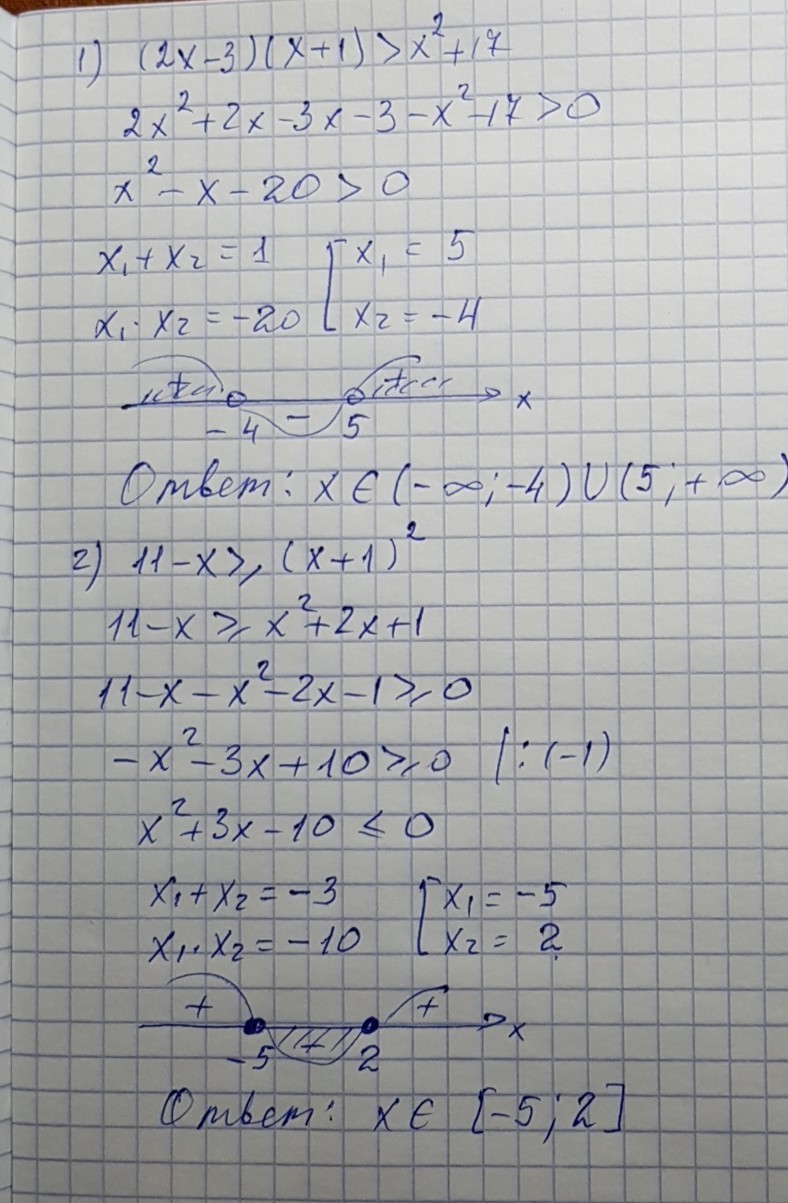 1) (2x-3)(x+1)>x²+17
2x²+2x-3x-3-x²-17>0
x²-x-20>0
x₁+x₂=1 [x₁=5
x₁·x₂=-20 [x₂=-4
+ + x
-4 - 5
Ответ: x∈(-∞;-4)∪(5;+∞)
2) 11-x≥(x+1)²
11-x≥x²+2x+1
11-x-x²-2x-1≥0
-x²-3x+10≥0 |:(-1)
x²+3x-10≤0
x₁+x₂=-3 [x₁=-5
x₁·x₂=-10 [x₂=2
+ + x
-5 2
Ответ: x∈[-5;2]